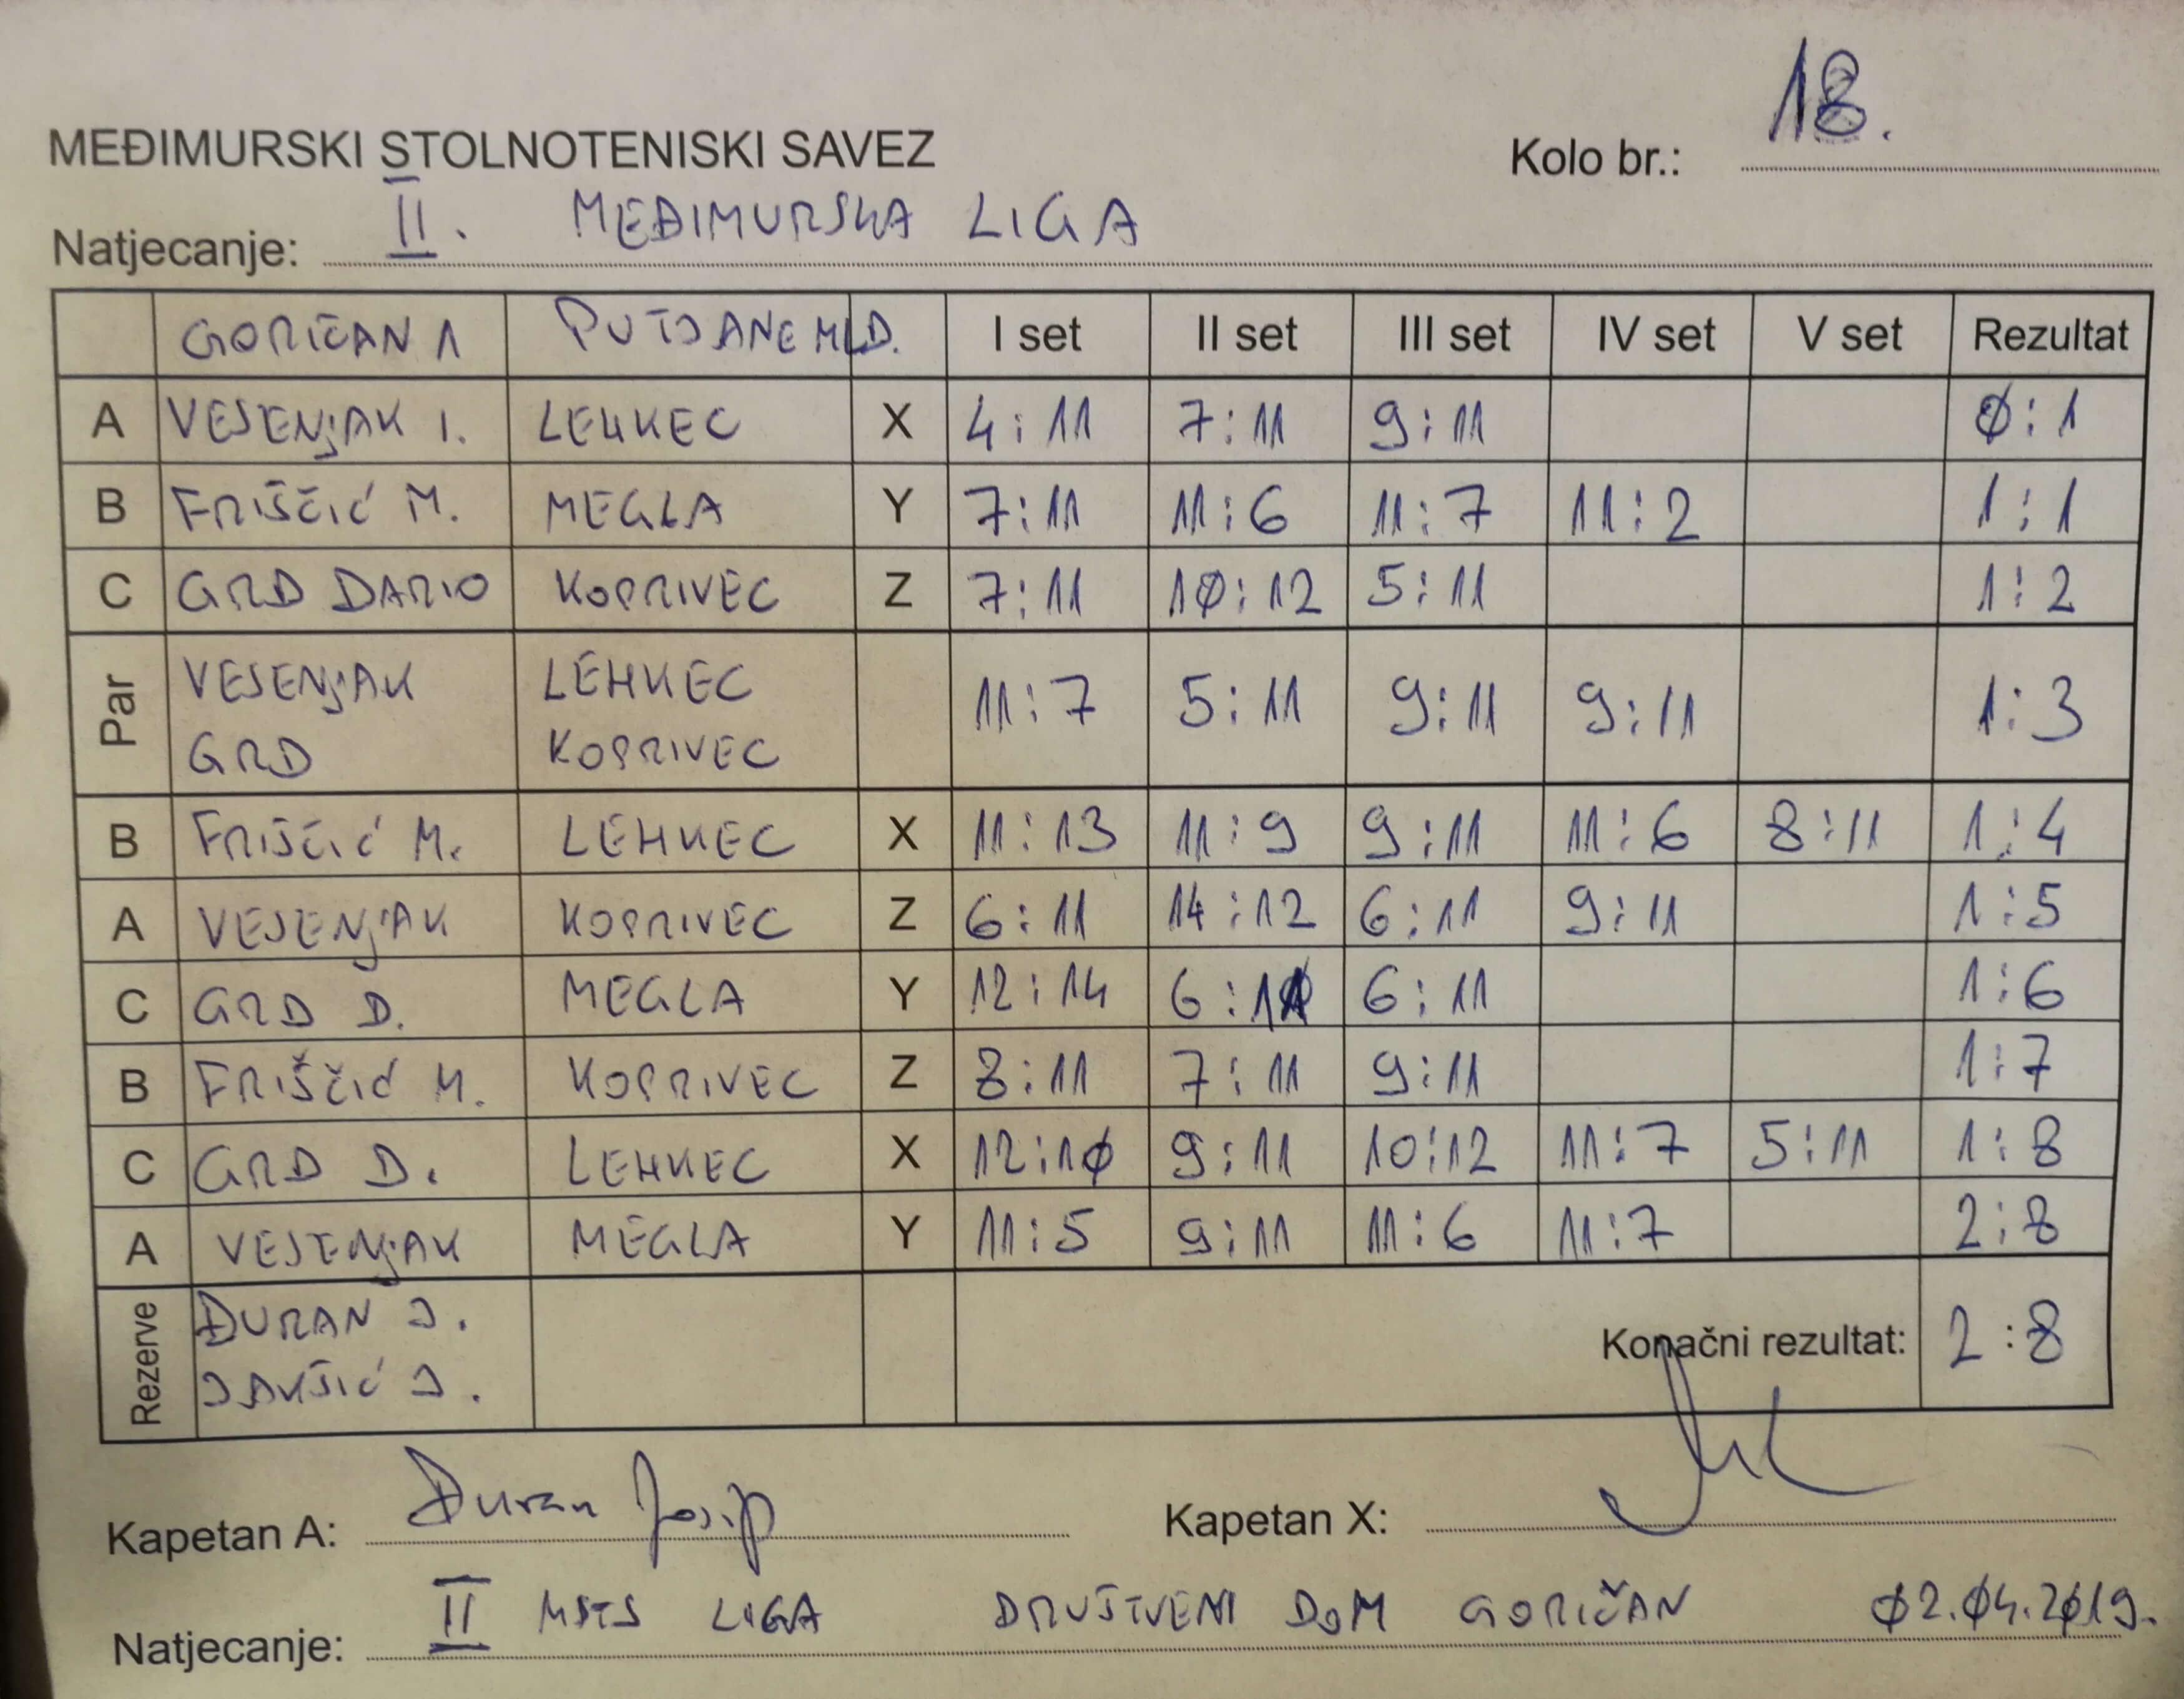 MEĐIMURSKI STOLNOTENISKI SAVEZ
Kolo br.: 18.
Natjecanje: II. MEĐIMURSKA LIGA
GORIČAN 1 PUTJANE MLD. I set II set III set IV set V set Rezultat
A VESENJAK I. LEHKEC X 4:11 7:11 9:11 0:1
B FRIŠČIĆ M. MEGLA Y 7:11 11:6 11:7 11:2 1:1
C GRD DARIO KOPRIVEC Z 7:11 10:12 5:11 1:2
Par VESENJAK GRD LEHKEC KOPRIVEC 11:7 5:11 9:11 9:11 1:3
B FRIŠČIĆ M. LEHKEC X 11:13 11:9 9:11 11:6 8:11 1:4
A VESENJAK KOPRIVEC Z 6:11 14:12 6:11 9:11 1:5
C GRD D. MEGLA Y 12:14 6:11 6:11 1:6
B FRIŠČIĆ M. KOPRIVEC Z 8:11 7:11 9:11 1:7
C GRD D. LEHKEC X 12:10 9:11 10:12 11:7 5:11 1:8
A VESENJAK MEGLA Y 11:5 9:11 11:6 11:7 2:8
Rezerve ĐURAN J. JAVŠIĆ J. Konačni rezultat: 2:8
Kapetan A: Đuran Josip Kapetan X:
Natjecanje: II MSTS LIGA DRUŠTVENI DOM GORIČAN 02.04.2019.